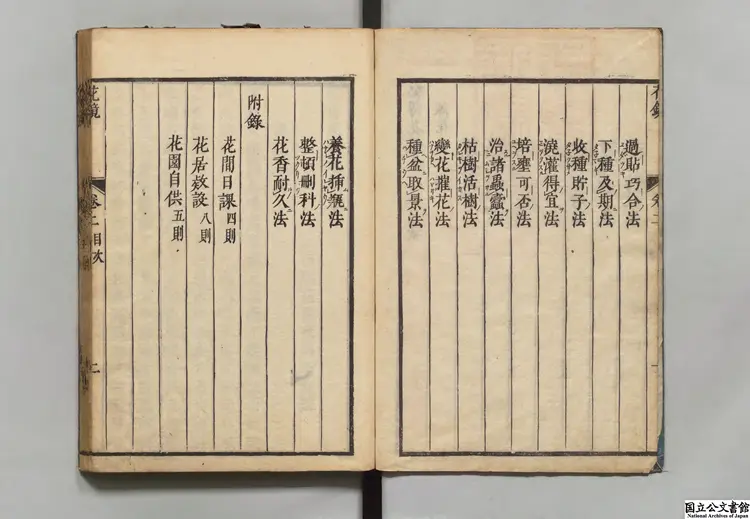 過貼巧合法
下種及期法
收種貯子法
澆灌得宜法
培壅可否法
治諸蟲蠹法
枯樹活樹法
變花摧花法
種盆取景法
花鏡
卷二目次
二
養花插瓶法
整頓刪科法
花香耐久法
附錄
花間日課 四則
花居欵設 八則
花園自供 五則
国立公文書館
National Archives of Japan